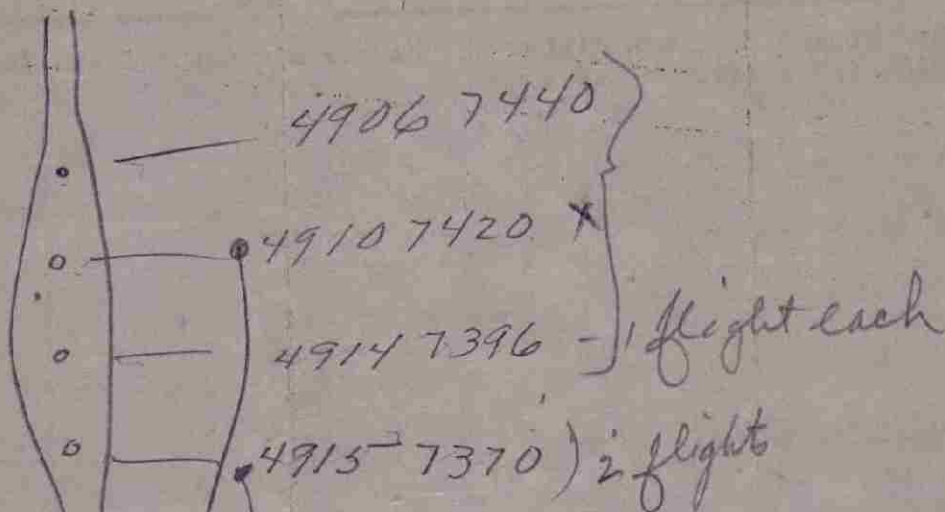 4906 7440
4910 7420 x
4914 7396 - 1 flight each
4915 7370 ) 2 flights